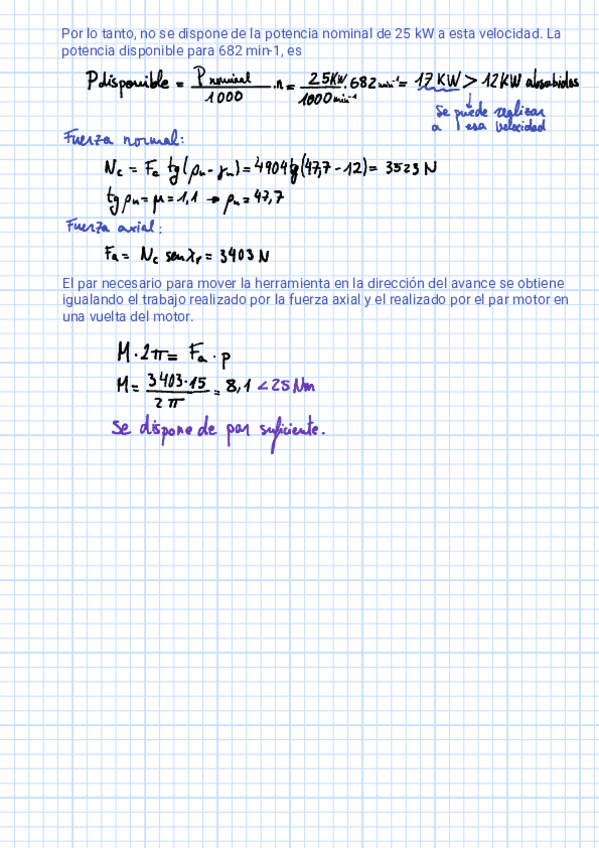 Por lo tanto, no se dispone de la potencia nominal de 25 kW a esta velocidad. La
potencia disponible para 682 min-1, es
Pdisponible = Pnominal/1000 · n = 25KW/1000min⁻¹ · 682min⁻¹ = 17KW > 12KW absorbidos
Se puede realizar
a esa velocidad
Fuerza normal:
Nc = Fc tg(ρn - γn) = 4904 tg(47,7 - 12) = 3523 N
tg ρn = μ = 1,1 → ρn = 47,7
Fuerza axial:
Fa = Nc sen λr = 3403 N
El par necesario para mover la herramienta en la dirección del avance se obtiene
igualando el trabajo realizado por la fuerza axial y el realizado por el par motor en
una vuelta del motor.
M · 2π = Fa · p
M = 3403·15/2π = 8,1 < 25 Nm
Se dispone de par suficiente.